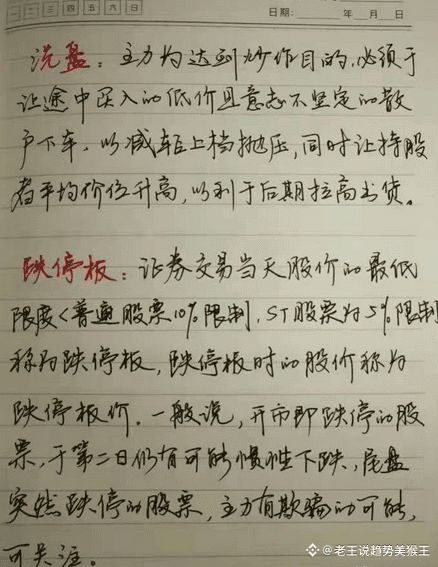 一 二 三 四 五 六 日
日期: 年 月 日
洗盘：主力为达到炒作目的,必须于
让途中买入的低价且意志不坚定的散
户下车，以减轻上档抛压,同时让持股
者平均价位升高,以利于后期拉高出货。
跌停板：证券交易当天股价的最低
限度<普通股票10%限制,ST股票为5%限制
称为跌停板,跌停板时的股价称为
跌停板价.一般说,开市即跌停的股
票,于第二日仍有可能惯性下跌,尾盘
突然跌停的股票,主力有欺骗的可能,
可关注。
@老王说趋势美猴王